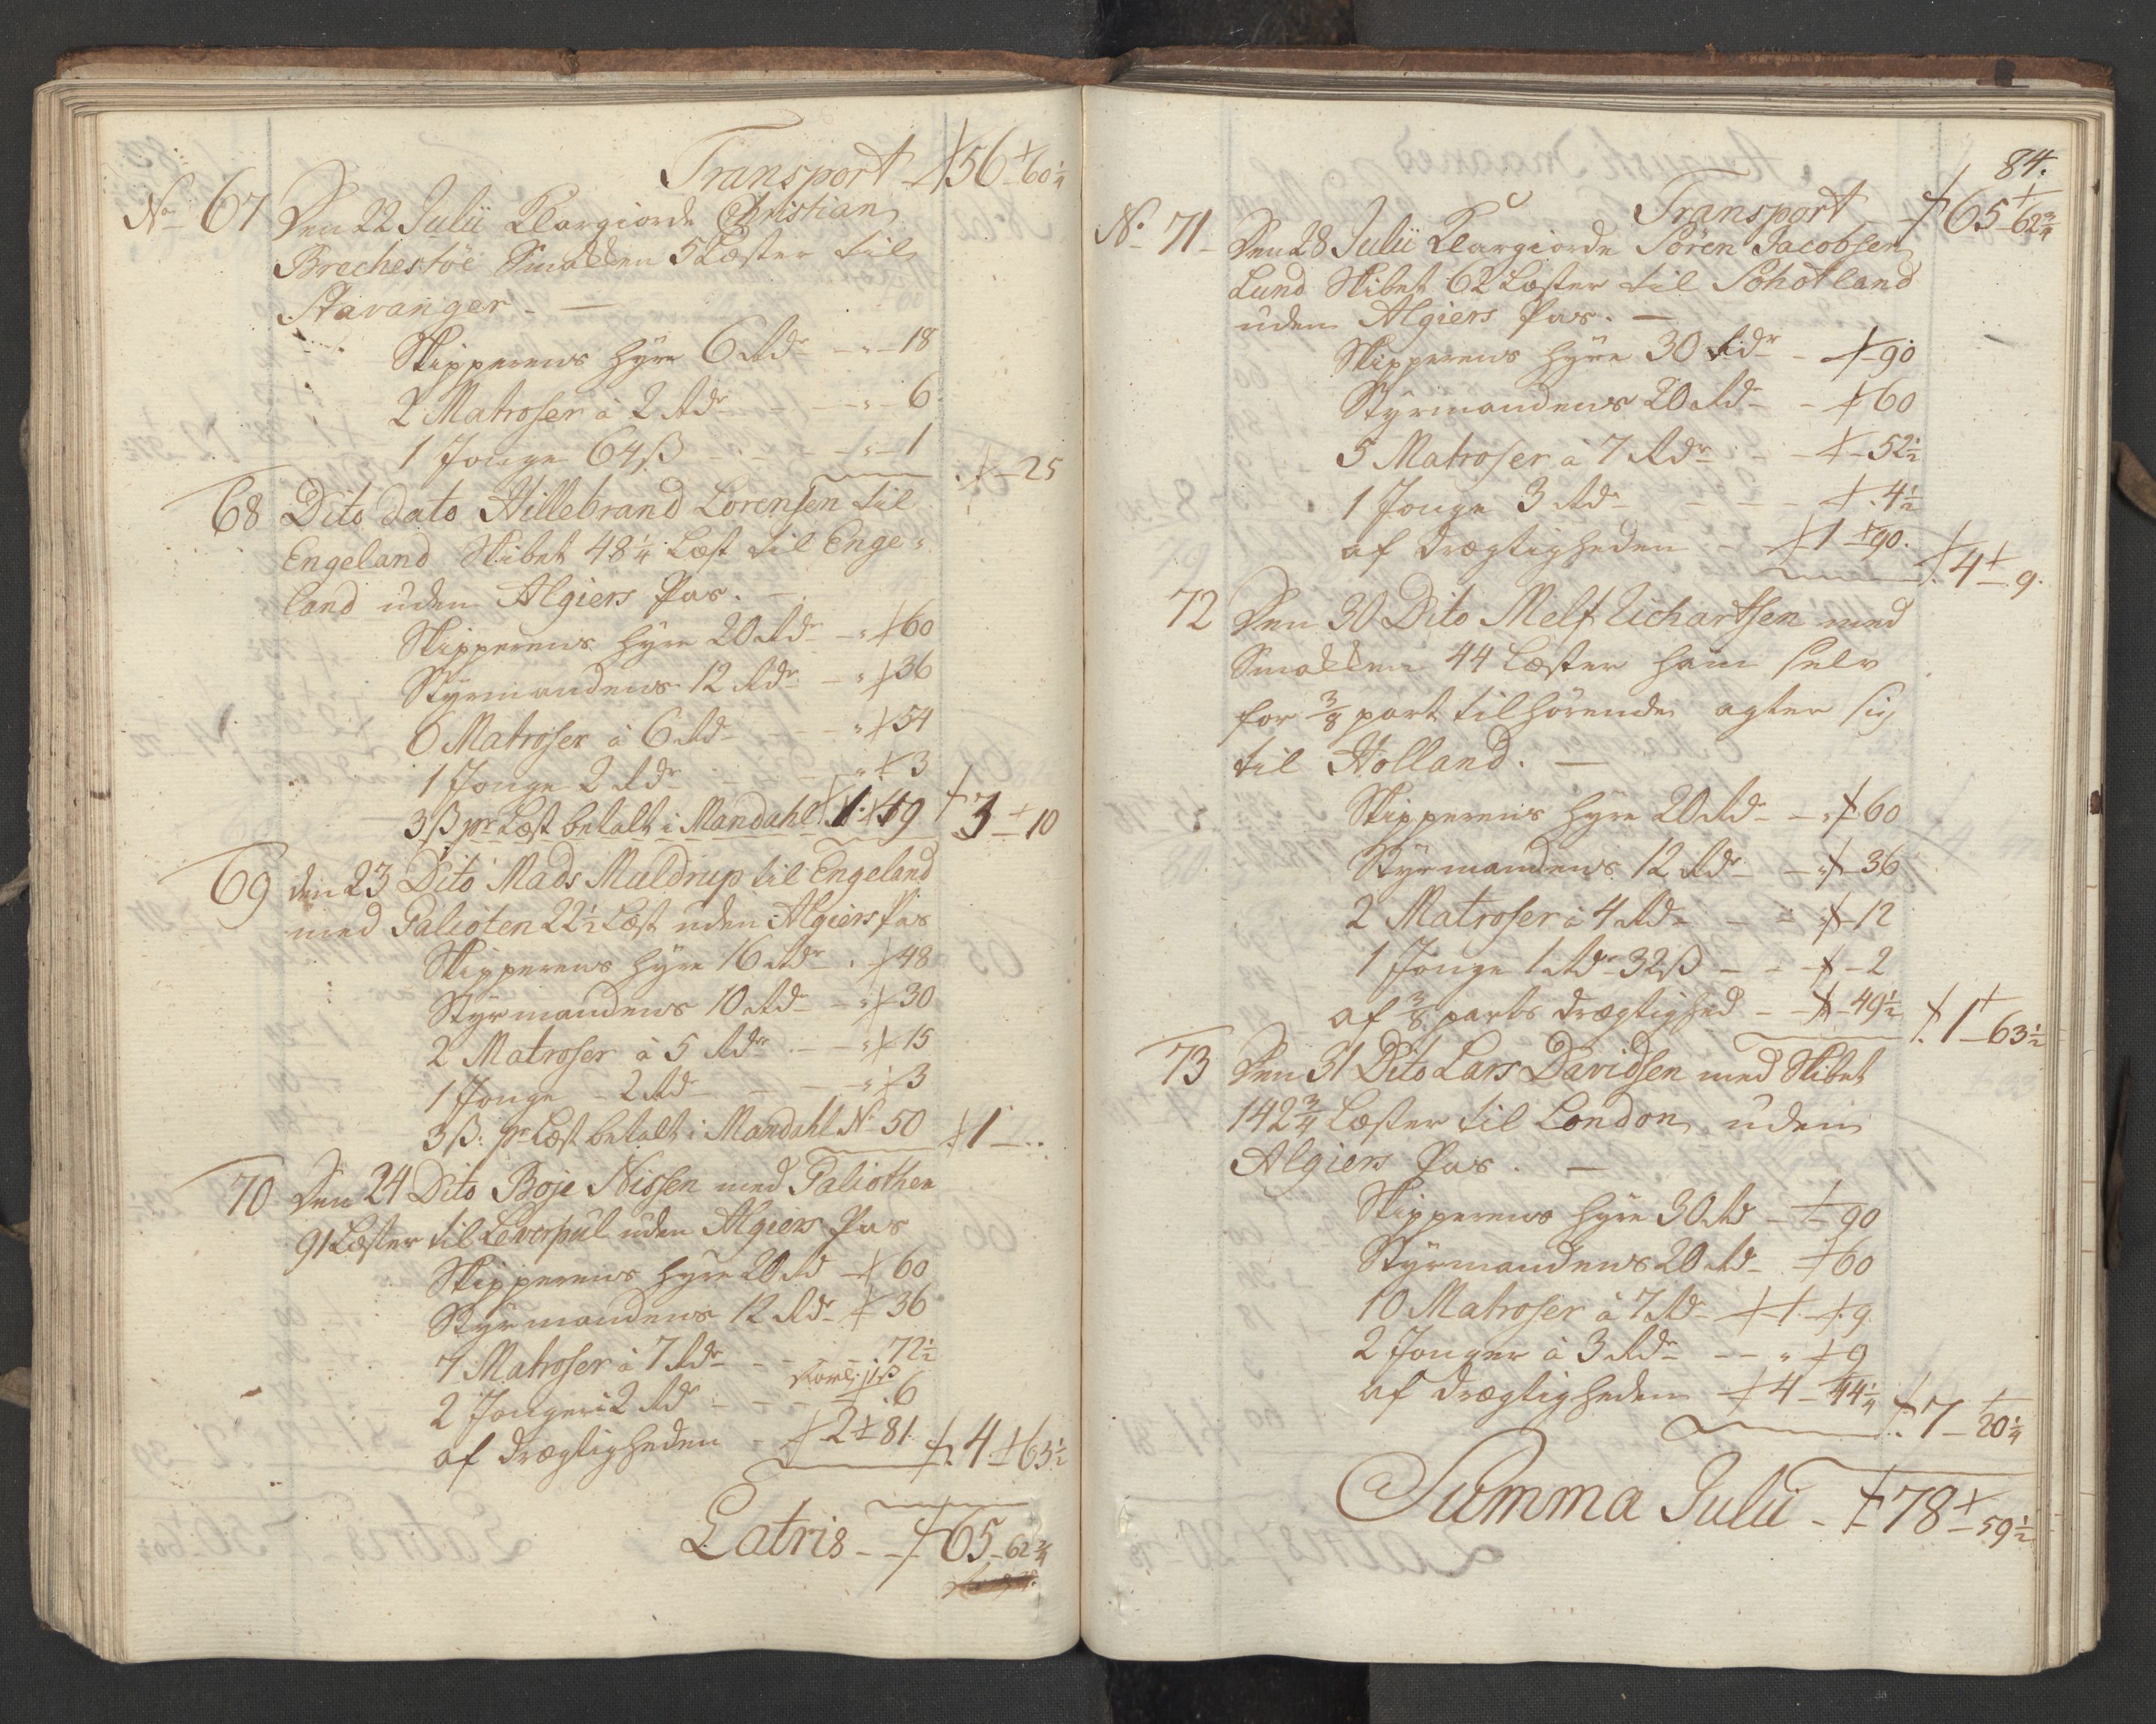 Transport 56 60 1/4
No 67 Den 22 Julii Klargiorde Christian
Brechestöe Smakken 5 Læster til
Stavanger
Skipperens Hÿre 6 Rdr 18
2 Matroser á 2 Rdr 6
1 Jonge 64 ß 1
25
68 Dito dato Hillebrand Lorensen til
Engeland Skibet 48 1/4 Læst til Enge-
land uden Algiers Pas.
Skipperens Hÿre 20 Rdr 60
Stÿrmandens 12 Rdr 36
6 Matroser á 6 Rdr 54
1 Jonge 2 Rdr 3
3 ß pr Læst betalt i Mandahl 1 49 3 10
69 den 23 Dito Mads Muldrup til Engeland
med Galioten 22 1/2 Læst uden Algiers Pas
Skipperens Hÿre 16 Rdr 48
Stÿrmandens 10 Rdr 30
2 Matroser á 5 Rdr 15
1 Jonge 2 Rdr 3
3 ß pr Læst betalt i Mandahl No 50 1
70 Den 24 Dito Boje Nissen med Galiothen
91 Læster til Leverpul uden Algiers Pas
Skipperens Hÿre 20 Rd 60
Stÿrmandens 12 Rdr 36
7 Matroser á 7 Rdr 72 1/2
2 Jonger á 2 Rd 6
af Drægtigheden 2 81 4 63 1/2
Latris 65 62 3/4
84.
Transport 65 62 3/4
No 71 Den 28 Julii Klargiorde Sören Jacobsen
Lund Skibet 62 Læster til Schotland
uden Algiers Pas.
Skipperens Hÿre 30 Rdr 90
Stÿrmandens 20 Rdr 60
5 Matroser á 7 Rdr 52 1/2
1 Jonge 3 Rdr 4 1/2
af Drægtigheden 1 90. 4 9.
72 Den 30 Dito Melf Richartsen med
Smakken 44 Læster ham selv
for 3/8 part tilhörende agter sig
til Holland.
Skipperens Hÿre 20 Rdr 60
Stÿrmandens 12 Rdr 36
2 Matroser á 4 Rdr 12
1 Jonge 1 Rdr 32 ß 2
af 3/8 parts Drægtighed 49 1/2 1 63 1/2
73 Den 31 Dito Lars Davidsen med Skibet
142 3/4 Læster til London uden
Algiers Pas.
Skipperens Hÿre 30 Rd 90
Stÿrmandens 20 Rd 60
10 Matroser á 7 Rd 1 9
2 Jonger á 3 Rdr 9
af Drægtigheden 4 44 1/4 7 20 1/4
Summa Julii 78 59 1/2